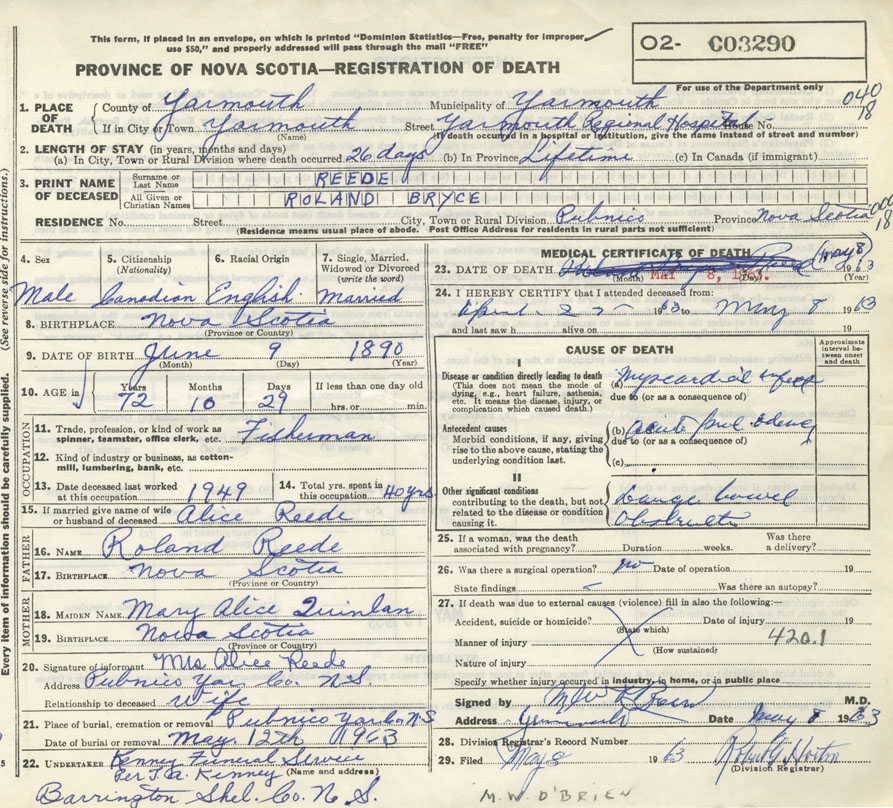 This form, if placed in an envelope, on which is printed "Dominion Statistics—Free, penalty for improper
use $50," and properly addressed will pass through the mail "FREE"
O2- C03290
For use of the Department only
PROVINCE OF NOVA SCOTIA—REGISTRATION OF DEATH
040
18
1. PLACE OF DEATH
County of Yarmouth Municipality of Yarmouth
If in City or Town Yarmouth Street Yarmouth Regional Hospital House No.
(Name) (If death occurred in a hospital or institution, give the name instead of street and number)
2. LENGTH OF STAY (in years, months and days)
(a) In City, Town or Rural Division where death occurred 26 days (b) In Province Lifetime (c) In Canada (if immigrant)
3. PRINT NAME OF DECEASED
Surname or Last Name REEDE
All Given or Christian Names ROLAND BRYCE
RESIDENCE No. Street City, Town or Rural Division Pubnico Province Nova Scotia
18
(Residence means usual place of abode. Post Office Address for residents in rural parts not sufficient)
4. Sex 5. Citizenship (Nationality) 6. Racial Origin 7. Single, Married, Widowed or Divorced (write the word)
Male Canadian English Married
8. BIRTHPLACE Nova Scotia
(Province or Country)
9. DATE OF BIRTH June 9 1890
(Month) (Day) (Year)
10. AGE in Years Months Days If less than one day old
72 10 29 hrs. or min.
OCCUPATION
11. Trade, profession, or kind of work as spinner, teamster, office clerk, etc. Fisherman
12. Kind of industry or business, as cotton-mill, lumbering, bank, etc.
13. Date deceased last worked at this occupation 1949
14. Total yrs. spent in this occupation 40 yrs
15. If married give name of wife or husband of deceased Alice Reede
FATHER
16. NAME Roland Reede
17. BIRTHPLACE Nova Scotia
(Province or Country)
MOTHER
18. MAIDEN NAME Mary Alice Quinlan
19. BIRTHPLACE Nova Scotia
(Province or Country)
20. Signature of informant Mrs Alice Reede
Address Pubnico Yar. Co. N.S.
Relationship to deceased wife
21. Place of burial, cremation or removal Pubnico Yar Co N S
Date of burial or removal May. 12th 1963
22. UNDERTAKER Kenney Funeral Service
Per J. A. Kenney (Name and address)
Barrington Shel. Co. N. S.
(See reverse side for instructions.)
Every item of information should be carefully supplied.
MEDICAL CERTIFICATE OF DEATH
(May 8)
23. DATE OF DEATH May 8, 1963. 1963
(Month) (Day) (Year)
24. I HEREBY CERTIFY that I attended deceased from:
April 1963 to May 8 1963
and last saw h alive on 19
CAUSE OF DEATH
Approximate interval between onset and death
I
Disease or condition directly leading to death
(This does not mean the mode of dying, e.g., heart failure, asthenia, etc. It means the disease, injury, or complication which caused death.)
(a) Myocardial
due to (or as a consequence of)
Antecedent causes
Morbid conditions, if any, giving rise to the above cause, stating the underlying condition last.
(b) acute pul. edema
due to (or as a consequence of)
(c)
II
Other significant conditions
contributing to the death, but not related to the disease or condition causing it.
Large bowel
Obstruction
25. If a woman, was the death associated with pregnancy? Duration weeks. Was there a delivery?
26. Was there a surgical operation? no Date of operation 19
State findings - Was there an autopsy?
27. If death was due to external causes (violence) fill in also the following:—
Accident, suicide or homicide? Date of injury 19
(State which)
Manner of injury 420.1
(How sustained)
Nature of injury
Specify whether injury occurred in industry, in home, or in public place
Signed by M W O'Brien M.D.
Address Yarmouth Date May 8 1963
28. Division Registrar's Record Number
29. Filed May 8 1963
(Division Registrar)
M.W. O'BRIEN